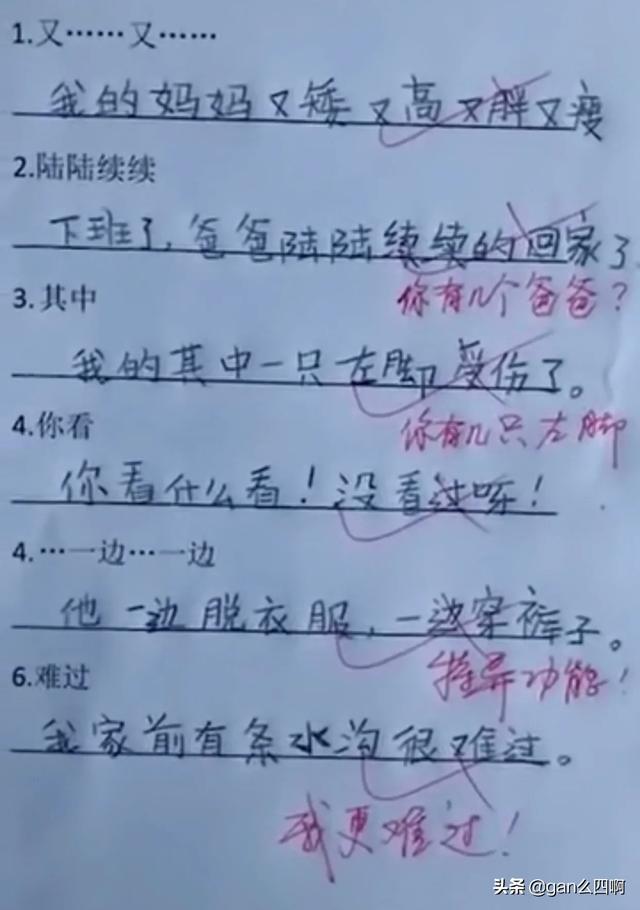 1.又……又……
我的妈妈又矮又高又胖又瘦
2.陆陆续续
下班了,爸爸陆陆续续的回家了.
你有几个爸爸?
3.其中
我的其中一只左脚受伤了。
你有几只左脚
4.你看
你看什么看!没看过呀!
4.…一边…一边
他一边脱衣服,一边穿裤子。
特异功能!
6.难过
我家前有条水沟很难过。
我更难过!
头条 @gan么四啊